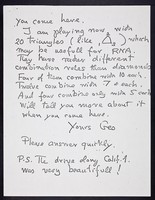 you come here.
I am playing now with
20 triangles (like △) which
may be usefull for RNA.
They have rather different
combination rules than diamonds
Four of them combine with 10 each.
Twelve combine with 7 each.
And four combine only with 5 each
Will tell you more about it
when you come here.
Yours Geo
Please answer quickly
P.S. The drive along Calif. 1.
was very beautifull!